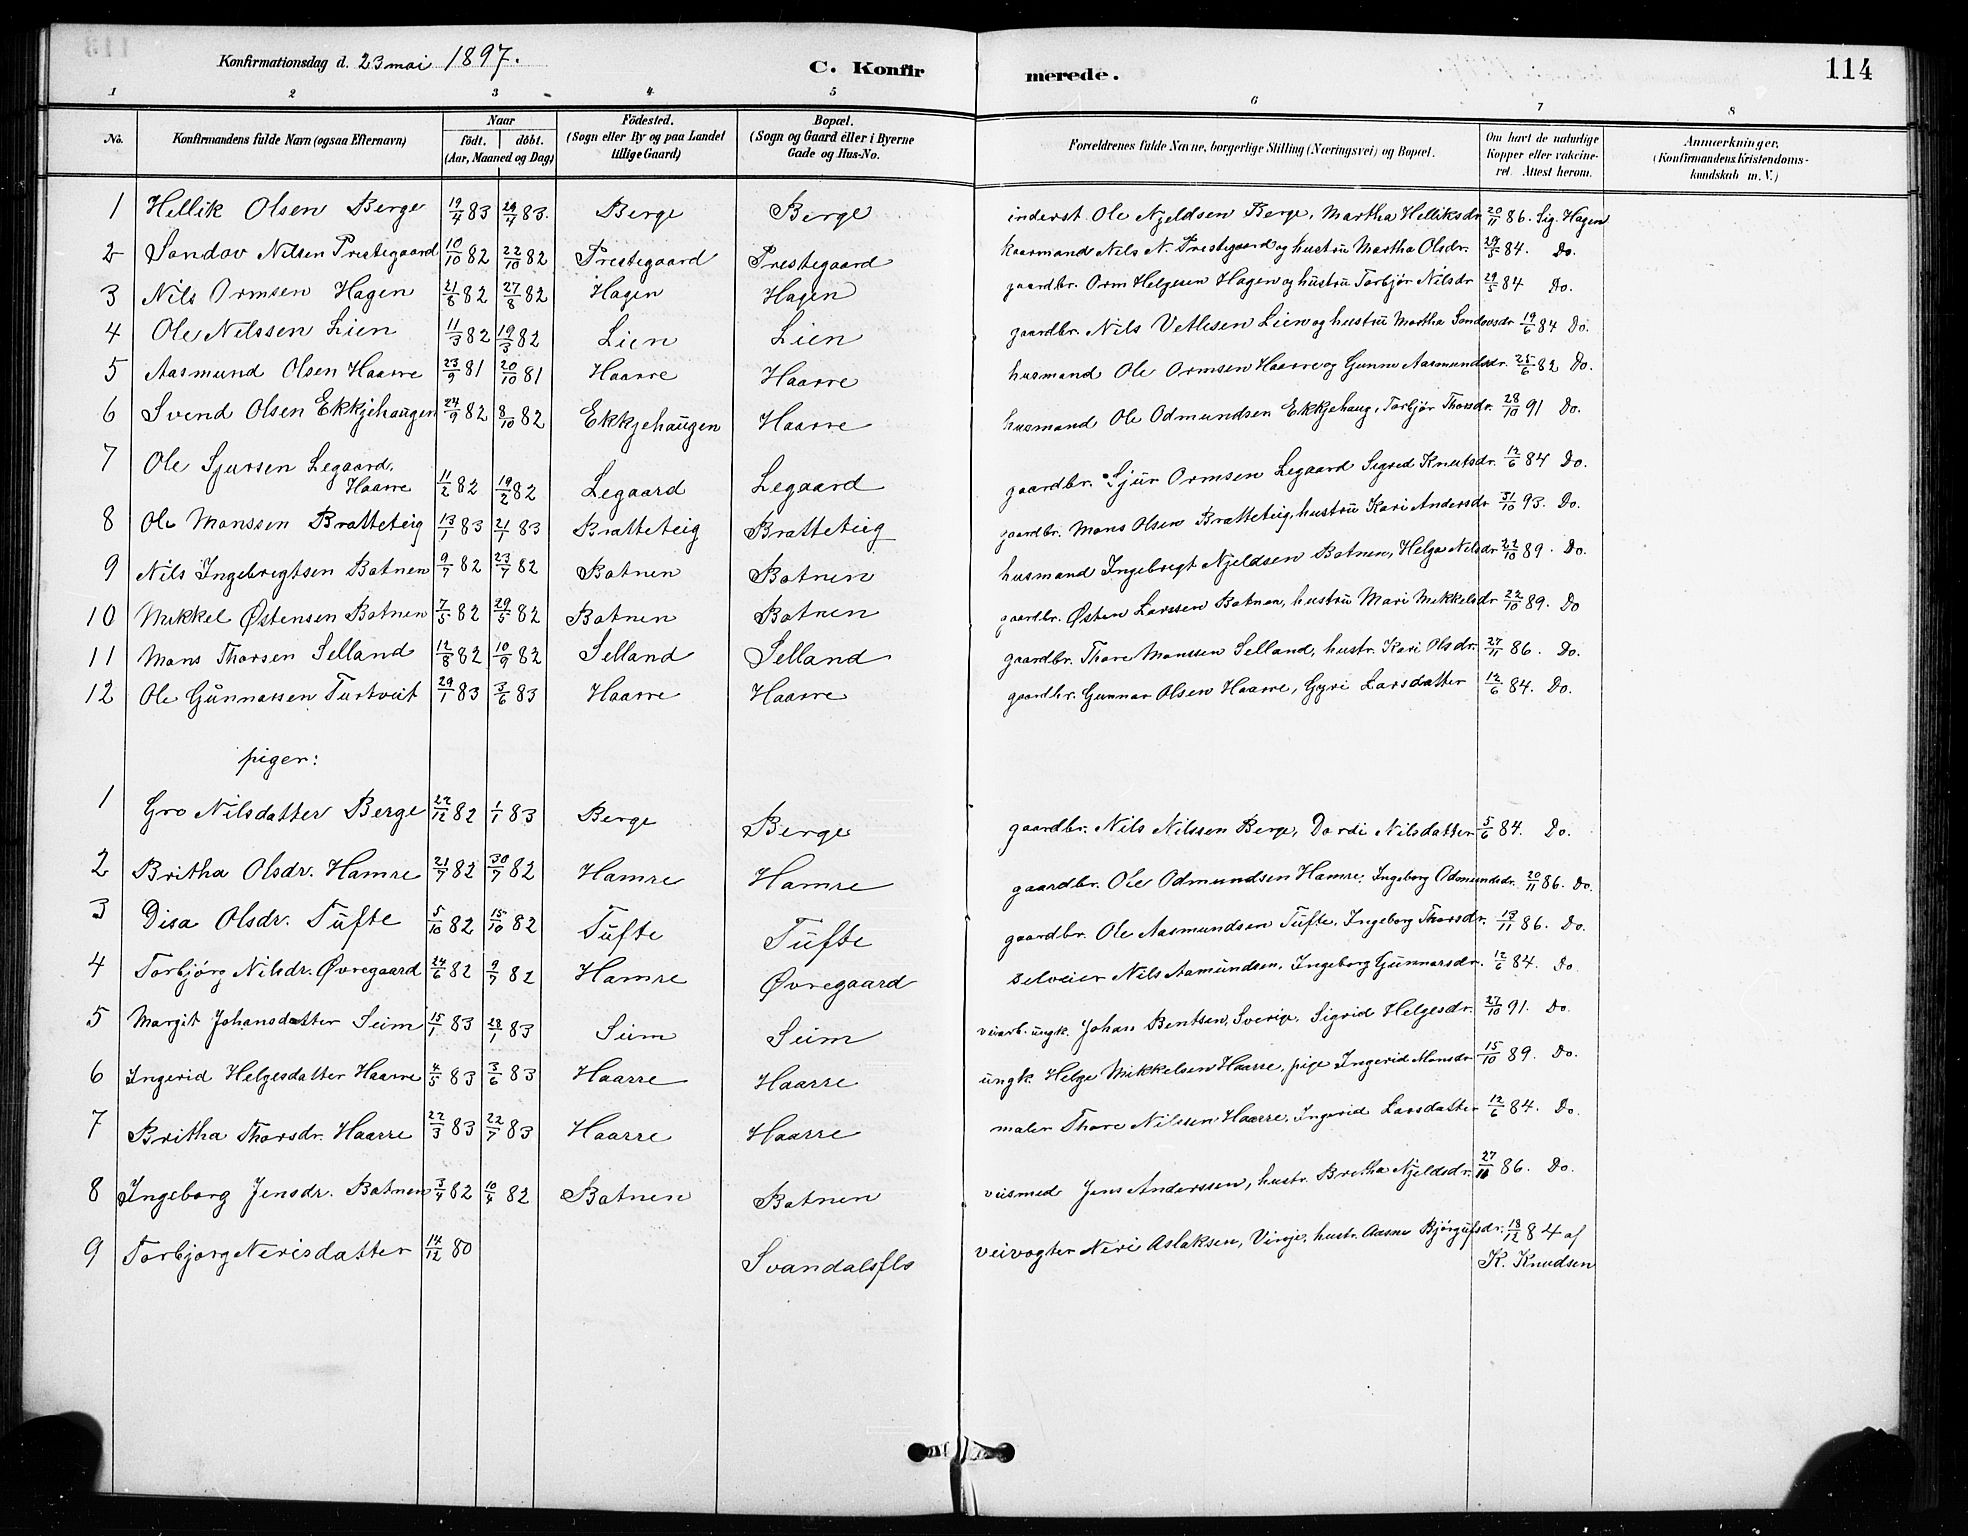 Konfirmationsdag d. 23 mai 1897.
C. Konfirmerede.
114
1 2 3 4 5 6 7 8
No. Konfirmandens fulde Navn (ogsaa Efternavn) Naar födt. döbt. (Aar, Maaned og Dag) Födested. (Sogn eller By og paa Landet tillige Gaard) Bopæl. (Sogn og Gaard eller i Byerne Gade og Hus-No. Forældrenes fulde Navne, borgerlige Stilling (Næringsvei) og Bopæl. Om havt de naturlige Kopper eller vakcineret. Attest herom. Anmærkninger. (Konfirmandens Kristendomskundskab m. V.)
1 Hellik Olsen Berge 19/4 83 29/4 83. Berge Berge inderst Ole Njeldsen Berge, Martha Helliksdr. 20/11 86. Sig. Hagen
2 Sondov Nilsen Prestegaard 10/10 82 22/10 82 Prestegaard Prestegaard kaarmand Nils N. Prestegaard og hustru Martha Olsdr. 29/5 84. Do.
3 Nils Ormsen Hagen 21/8 82 27/8 82 Hagen Hagen gaardbr. Orm Helgesen Hagen og hustru Torbjør Nilsdr 29/5 84 Do.
4 Ole Nilssen Lien 11/3 82 19/3 82 Lien Lien gaardbr. Nils Vetlesen Lien og hustru Martha Sondovsdr 19/6 84 Do.
5 Aasmund Olsen Haarre 23/9 81 20/10 81 Haarre Haarre husmand Ole Ormsen Haarre og Gunne Aasmundsdr. 25/6 82 Do.
6 Svend Olsen Ekkjehaugen 24/9 82 8/10 82 Ekkjehaugen Haarre husmand Ole Odmundsen Ekkjehaug, Torbjør Thorsdr. 28/10 91 Do.
7 Ole Sjursen Legaard, Haarre 11/2 82 19/2 82 Legaard Legaard gaardbr. Sjur Ormsen Legaard Sigrid Knutsdr. 12/6 84 Do.
8 Ole Monssen Bratteteig 13/1 83 21/1 83 Bratteteig Bratteteig gaardbr. Mons Olsen Bratteteig, hustru Kari Andersdr 31/10 93. Do.
9 Nils Ingebrigtsen Botnen 9/7 82 23/7 82 Botnen Botnen husmand Ingebrigt Njeldsen Botnen, Helga Nilsdr 22/10 89. Do.
10 Mikkel Østensen Botnen 7/5 82 29/5 82 Botnen Botnen gaardbr. Østen Larssen Botnen, hustru Mari Mikkelsdr 22/10 89. Do
11 Mons Thorsen Selland 12/8 82 10/9 82 Selland Selland gaardbr. Thore Monssen Selland, hustr. Kari Olsdr. 27/11 86. Do.
12 Ole Gunnarsen Turtveit 29/1 83 3/6 83 Haarre Haarre gaardbr. Gunnar Olsen Haarre, Gyri Larsdatter 12/6 84. Do.
piger:
1 Gro Nilsdatter Berge 22/12 82 1/1 83 Berge Berge gaardbr. Nils Nilssen Berge, Dordi Nilsdatter 5/6 84. Do.
2 Britha Olsdr. Hamre 21/7 82 30/7 82 Hamre Hamre gaardbr. Ole Odmundsen Hamre, Ingeborg Odmundsdr. 20/11 86. Do.
3 Disa Olsdr. Tufte 5/10 82 15/10 82 Tufte Tufte gaardbr. Ole Aasmundsen Tufte, Ingeborg Thorsdr. 13/11 86. Do.
4 Torbjørg Nilsdr. Øvregaard 24/6 82 9/7 82 Hamre Øvregaard selveier Nils Aamundsen, Ingeborg Gunnarsdr. 12/6 84. Do
5 Margit Johansdatter Seim 15/1 83 28/1 83 Seim Seim veiarb. ungk. Johan Bentsen, Sverige, Sigrid Helgesdr. 27/10 91. Do.
6 Ingerid Helgesdatter Haarre 4/5 83 3/6 83 Haarre Haarre ungk. Helge Mikkelsen Haarre, pige Ingerid Monsdr 15/10 89. Do.
7 Britha Thorsdr. Haarre 22/3 83 22/7 83 Haarre Haarre maler Thore Nilssen Haarre, Ingerid Larsdatter 12/6 84. Do.
8 Ingeborg Jensdr. Botnen 3/9 82 10/9 82 Botnen Botnen Jens Anderssen, hustr. Britha Njeldsdr. 27/10 86. Do.
9 Torbjorg Nerisdatter 14/12 80 Svandalsfls veivogter Neri Aslaksen, Vinje, hustr. Aasne Bjørgufsdr. 18/12 84 af
K. Knudsen